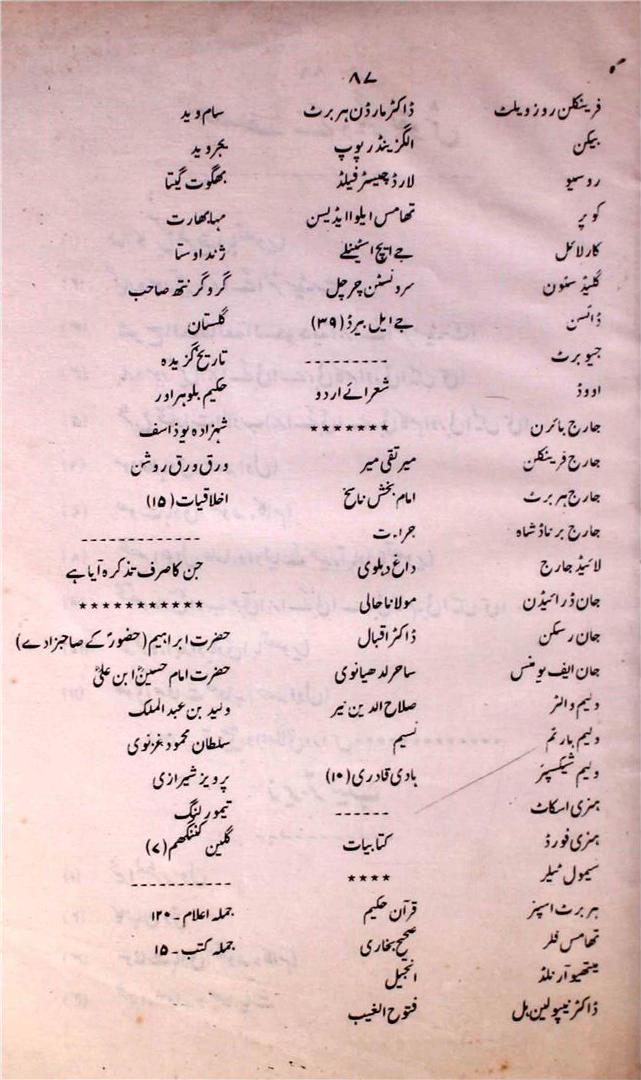 ۸۷
فرینکلن روزویلٹ
بیکن
روسیو
کوپر
کارلائل
گلیڈسٹون
ڈانسن
جیوبرٹ
اووڈ
جارج بائرن
جارج فرینکلن
جارج ہربرٹ
جارج برناڈشاہ
لائیڈ جارج
جان ڈرائیڈن
جان رسکن
جان ایف یومنس
ولیم والنر
ولیم بارنم
ولیم شیکسپئر
ہنری اسکاٹ
ہنری فورڈ
سیمول ٹیلر
ہربرٹ اسپنر
تھامس فلر
میتھیو آرنلڈ
ڈاکٹر نیپولین ہل
ڈاکٹر مارڈن ہربرٹ
الگزینڈر پوپ
لارڈ چیسٹر فیلڈ
تھامس ایلوا ایڈیسن
جے ایچ اسٹینلے
سرونسٹن چرچل
جے ایل بیرڈ (۳۹)
---------
شعرائے اردو
*******
میر تقی میر
امام بخش ناسخ
جراءت
داغ دہلوی
مولانا حالی
ڈاکٹر اقبال
ساحر لدھیانوی
صلاح الدین نیر
نسیم
ہادی قادری (۱۰)
------
کتابیات
****
قرآن حکیم
صحیح بخاری
انجیل
فتوح الغیب
سام وید
یجروید
بھگوت گیتا
مہابھارت
ژند اوستا
گروگرنتھ صاحب
گلستان
تاریخ گزیدہ
حکیم بلوہر اور
شہزادہ یوذاسف
ورق ورق روشن
اخلاقیات (۱۵)
-------------
جن کا صرف تذکرہ آیا ہے
***********
حضرت ابراہیم (حضورؐ کے صاحبزادے)
حضرت امام حسینؓ ابن علیؓ
ولید بن عبدالملک
سلطان محمود غزنوی
پرویز شیرازی
تیمور لنگ
گلین کننگھم (۷)
-----------
جملہ اعلام ۔ ۱۲۰
جملہ کتب ۔ ۱۵